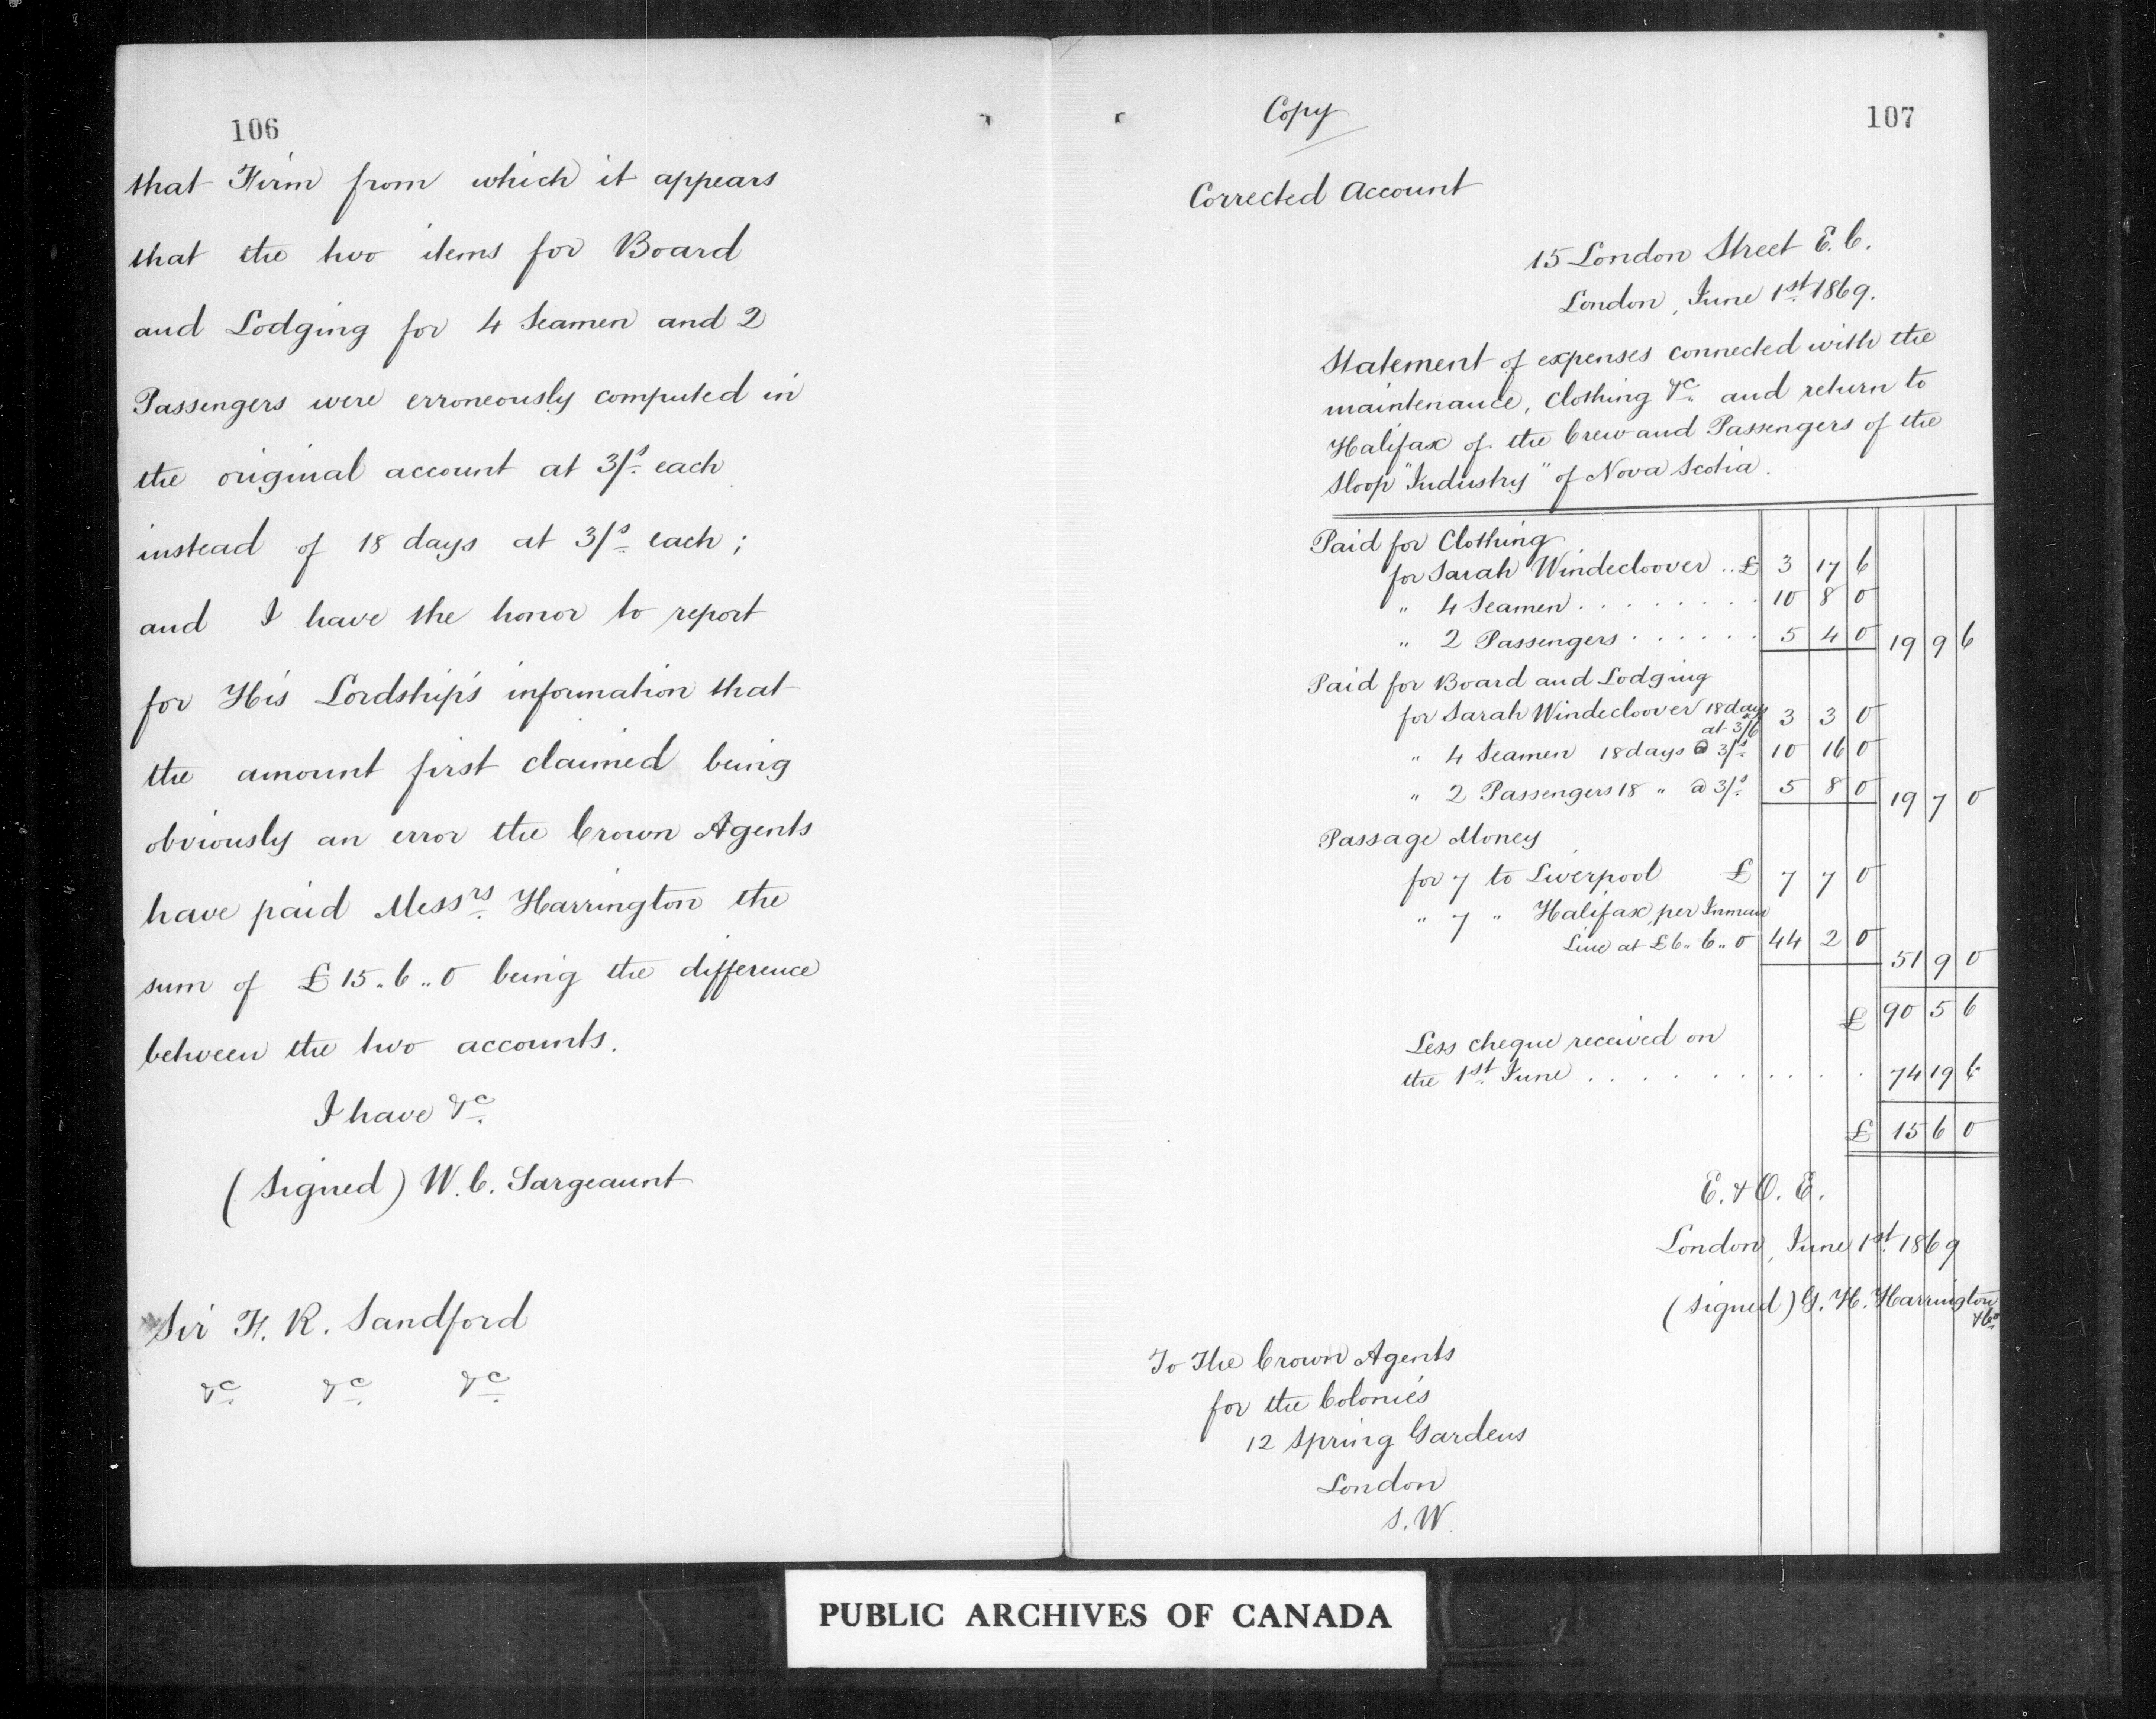 106
that Firm from which it appears
that the two items for Board
and Lodging for 4 Seamen and 2
Passengers were erroneously computed in
the original account at 3/s. each
instead of 18 days at 3/s. each;
and I have the honor to report
for His Lordship's information that
the amount first claimed being
obviously an error the Crown Agents
have paid Messrs. Harrington the
sum of £15..6..0 being the difference
between the two accounts.
I have &c.
(Signed) W. C. Sargeaunt
Sir F. R. Sandford
&c. &c. &c.
Copy
107
Corrected Account
15 London Street E.C.
London, June 1st. 1869.
Statement of expenses connected with the
maintenance, Clothing &c. and return to
Halifax of the Crew and Passengers of the
Sloop "Industry" of Nova Scotia.
Paid for Clothing
for Sarah Windecloover .. £ 3 17 6
" 4 Seamen . . . . . . . . 10 8 0
" 2 Passengers . . . . . . 5 4 0 19 9 6
Paid for Board and Lodging
for Sarah Windecloover 18 days
at 3/6 3 3 0
" 4 Seamen 18 days @ 3/s. 10 16 0
" 2 Passengers 18 " @ 3/s. 5 8 0 19 7 0
Passage Money
for 7 to Liverpool £ 7 7 0
" 7 " Halifax per Inman
Line at £6..6..0 44 2 0 51 9 0
£ 90 5 6
Less cheque received on
the 1st. June . . . . . . . . . . 74 19 6
£ 15 6 0
E. & O. E.
London, June 1st. 1869
(Signed) G. H. Harrington
& Co.
To The Crown Agents
for the Colonies
12 Spring Gardens
London
S.W.
PUBLIC ARCHIVES OF CANADA